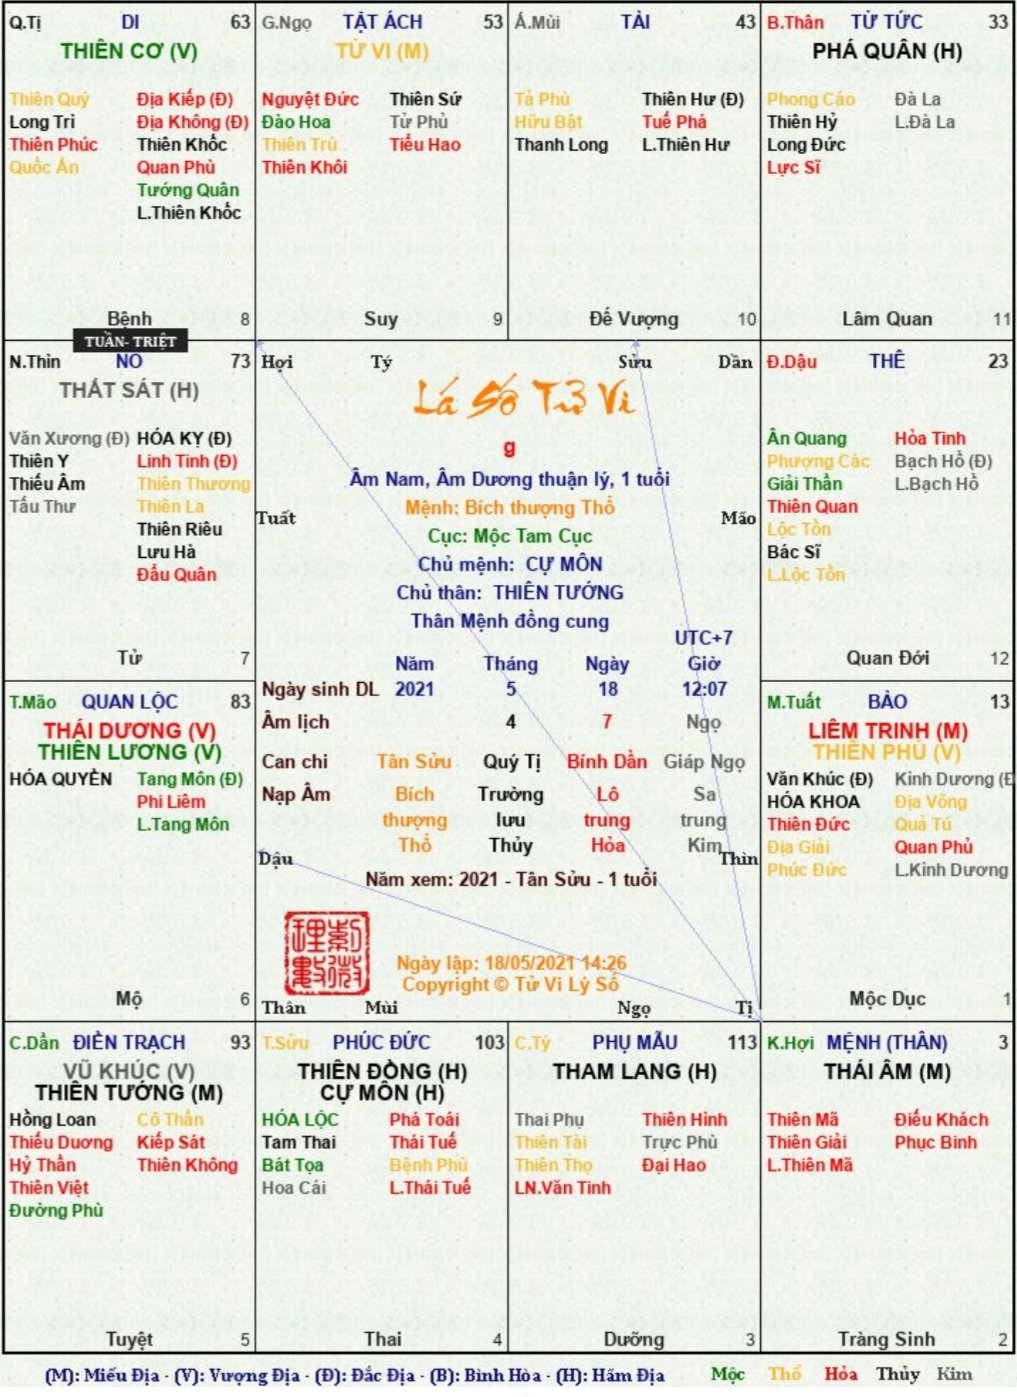 Q.Tị DI 63
THIÊN CƠ (V)
Thiên Quý Địa Kiếp (Đ)
Long Trì Địa Không (Đ)
Thiên Phúc Thiên Khốc
Quốc Ấn Quan Phù
Tướng Quân
L.Thiên Khốc
Bệnh 8
G.Ngọ TẬT ÁCH 53
TỬ VI (M)
Nguyệt Đức Thiên Sứ
Đào Hoa Tử Phù
Thiên Trù Tiểu Hao
Thiên Khôi
Suy 9
Ấ.Mùi TÀI 43
Tả Phù Thiên Hư (Đ)
Hữu Bật Tuế Phá
Thanh Long L.Thiên Hư
Đế Vượng 10
B.Thân TỬ TỨC 33
PHÁ QUÂN (H)
Phong Cáo Đà La
Thiên Hỷ L.Đà La
Long Đức
Lực Sĩ
Lâm Quan 11
TUẦN- TRIỆT
N.Thìn NÔ 73
THẤT SÁT (H)
Văn Xương (Đ) HÓA KỴ (Đ)
Thiên Y Linh Tinh (Đ)
Thiếu Âm Thiên Thương
Tấu Thư Thiên La
Thiên Riêu
Lưu Hà
Đẩu Quân
Tử 7
Hợi Tý Sửu Dần
Lá Số Tử Vi
g
Âm Nam, Âm Dương thuận lý, 1 tuổi
Mệnh: Bích thượng Thổ
Tuất Mão
Cục: Mộc Tam Cục
Chủ mệnh: CỰ MÔN
Chủ thân: THIÊN TƯỚNG
Thân Mệnh đồng cung
UTC+7
Năm Tháng Ngày Giờ
Ngày sinh DL 2021 5 18 12:07
Âm lịch 4 7 Ngọ
Can chi Tân Sửu Quý Tị Bính Dần Giáp Ngọ
Nạp Âm Bích Trường Lô Sa
thượng lưu trung trung
Thổ Thủy Hỏa Kim
Dậu Thìn
Năm xem: 2021 - Tân Sửu - 1 tuổi
紫微
理數
Ngày lập: 18/05/2021 14:26
Copyright © Tử Vi Lý Số
Thân Mùi Ngọ Tị
Đ.Dậu THÊ 23
Ân Quang Hỏa Tinh
Phượng Các Bạch Hổ (Đ)
Giải Thần L.Bạch Hổ
Thiên Quan
Lộc Tồn
Bác Sĩ
L.Lộc Tồn
Quan Đới 12
T.Mão QUAN LỘC 83
THÁI DƯƠNG (V)
THIÊN LƯƠNG (V)
HÓA QUYỀN Tang Môn (Đ)
Phi Liêm
L.Tang Môn
Mộ 6
M.Tuất BÀO 13
LIÊM TRINH (M)
THIÊN PHỦ (V)
Văn Khúc (Đ) Kình Dương (Đ
HÓA KHOA Địa Võng
Thiên Đức Quả Tú
Địa Giải Quan Phủ
Phúc Đức L.Kình Dương
Mộc Dục 1
C.Dần ĐIỀN TRẠCH 93
VŨ KHÚC (V)
THIÊN TƯỚNG (M)
Hồng Loan Cô Thần
Thiếu Dương Kiếp Sát
Hỷ Thần Thiên Không
Thiên Việt
Đường Phù
Tuyệt 5
T.Sửu PHÚC ĐỨC 103
THIÊN ĐỒNG (H)
CỰ MÔN (H)
HÓA LỘC Phá Toái
Tam Thai Thái Tuế
Bát Tọa Bệnh Phù
Hoa Cái L.Thái Tuế
Thai 4
C.Tý PHỤ MẪU 113
THAM LANG (H)
Thai Phụ Thiên Hình
Thiên Tài Trực Phù
Thiên Thọ Đại Hao
LN.Văn Tinh
Dưỡng 3
K.Hợi MỆNH (THÂN) 3
THÁI ÂM (M)
Thiên Mã Điếu Khách
Thiên Giải Phục Binh
L.Thiên Mã
Tràng Sinh 2
(M): Miếu Địa - (V): Vượng Địa - (Đ): Đắc Địa - (B): Bình Hòa - (H): Hãm Địa Mộc Thổ Hỏa Thủy Kim